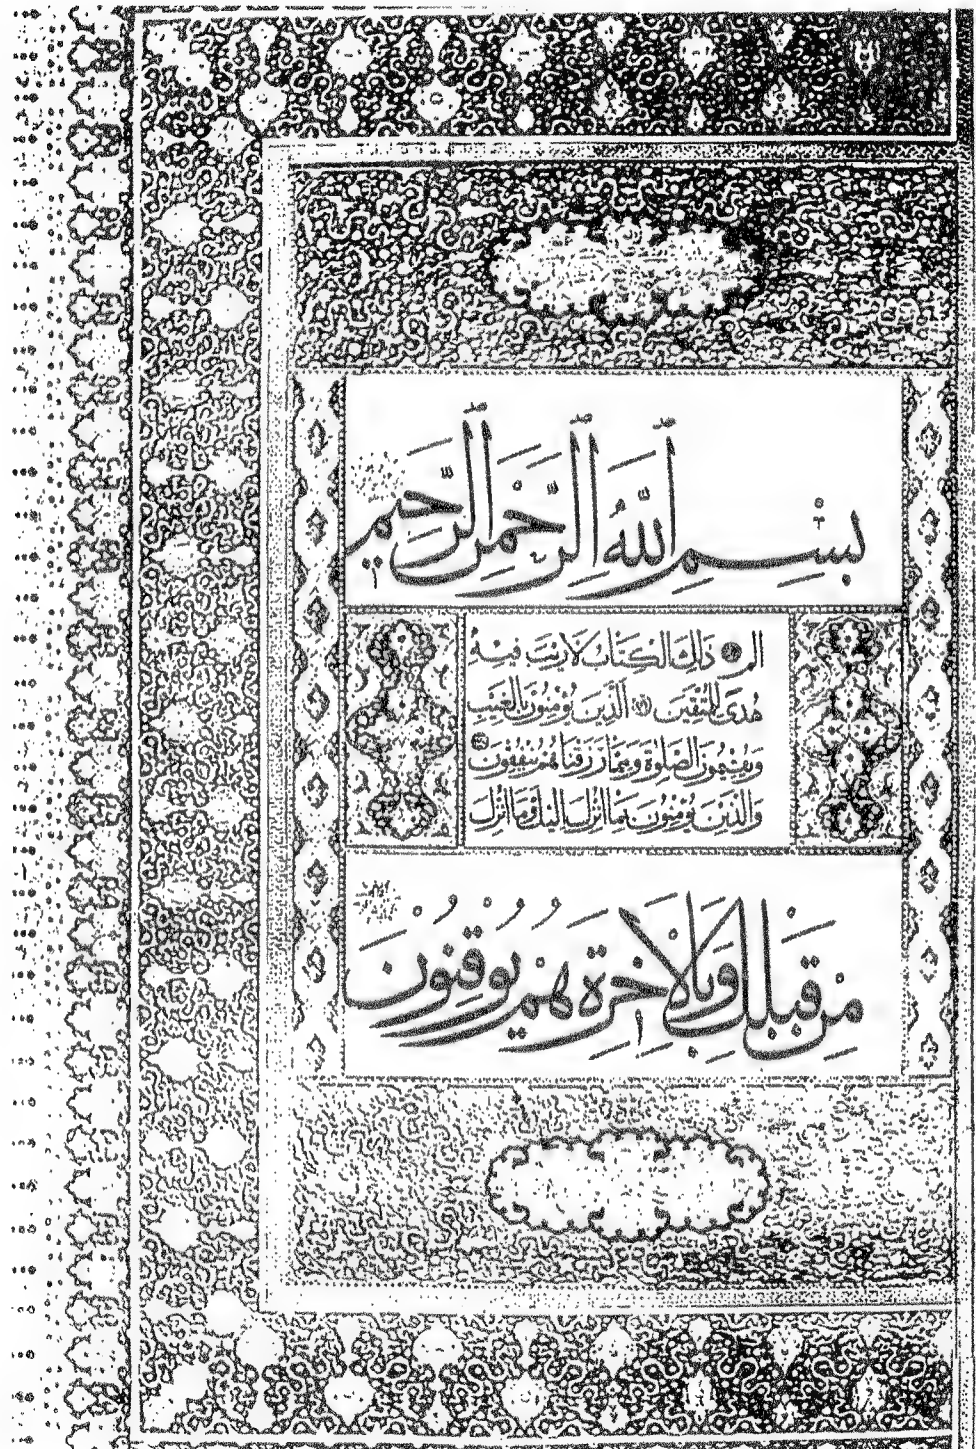 بِسْمِ اللَّهِ الرَّحْمٰنِ الرَّحِيمِ
الم ذَٰلِكَ الْكِتَابُ لَا رَيْبَ فِيهِ
هُدًى لِلْمُتَّقِينَ الَّذِينَ يُؤْمِنُونَ بِالْغَيْبِ
وَيُقِيمُونَ الصَّلَوٰةَ وَمِمَّا رَزَقْنَاهُمْ يُنْفِقُونَ
وَالَّذِينَ يُؤْمِنُونَ بِمَا أُنْزِلَ إِلَيْكَ وَمَا أُنْزِلَ
مِنْ قَبْلِكَ وَبِالْآخِرَةِ هُمْ يُوقِنُونَ